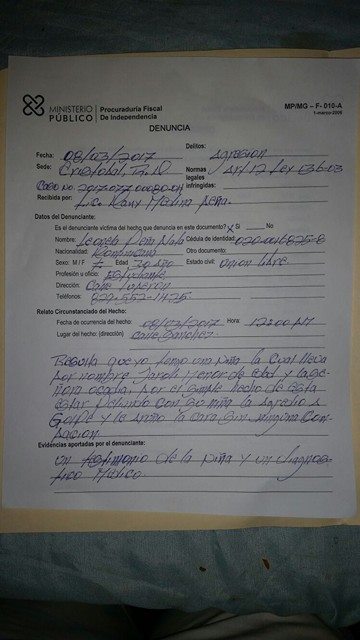 MINISTERIO PÚBLICO
Procuraduría Fiscal De Independencia
MP/MG – F- 010-A
1-marzo-2006
DENUNCIA
Fecha: 08/03/2017 Delitos: Agresion
Sede: Cristobal, Normas legales infringidas: Art 12 Ley 036-03
Caso no. 2017-077-00080-04
Recibida por: Lic. Medina Peña.
Datos del Denunciante:
Es el denunciante víctima del hecho que denuncia en este documento? X Si No
Nombre: Peña Cédula de identidad: 020-0016825-8
Nacionalidad: Dominicana Otro documento:
Sexo: M / F F Edad 30 Año Estado civil: Union libre
Profesión u oficio: Estudiante
Dirección: Calle Luperon
Teléfonos: 829-552-1425
Relato Circunstanciado del Hecho:
Fecha de ocurrencia del hecho: 08/03/2017 Hora: 12:00 PM
Lugar del hecho: (dirección) Calle Sanchez
Resulta que yo tengo una niña la cual lleva
por nombre Menor de edad y la
por el simple hecho de esta
estar con su niña la agredio a
Golpe y le la cara sin ninguna con
Evidencias aportadas por el denunciante:
un testimonio de la niña y un diagnos-
tico Medico